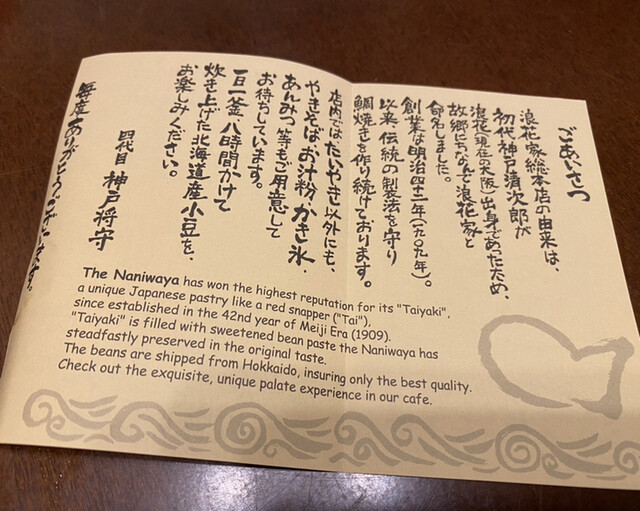 ごあいさつ
浪花家総本店の由来は、
初代神戸清次郎が
浪花(現在の大阪)出身であったため、
故郷にちなんで浪花家と
命名しました。
創業は明治四十二年(一九〇九年)。
以来、伝統の製法を守り
鯛焼きを作り続けております。
店内では、たいやき以外にも、
やきそば、お汁粉、かき氷、
あんみつ等もご用意して
お待ちしています。
一日一釜、八時間かけて
炊き上げた北海道産小豆を、
お楽しみください。
四代目 神戸将守
毎度ありがとうございます。
The Naniwaya has won the highest reputation for its "Taiyaki",
a unique Japanese pastry like a red snapper ("Tai"),
since established in the 42nd year of Meiji Era (1909).
"Taiyaki" is filled with sweetened bean paste the Naniwaya has
steadfastly preserved in the original taste.
The beans are shipped from Hokkaido, insuring only the best quality.
Check out the exquisite, unique palate experience in our cafe.